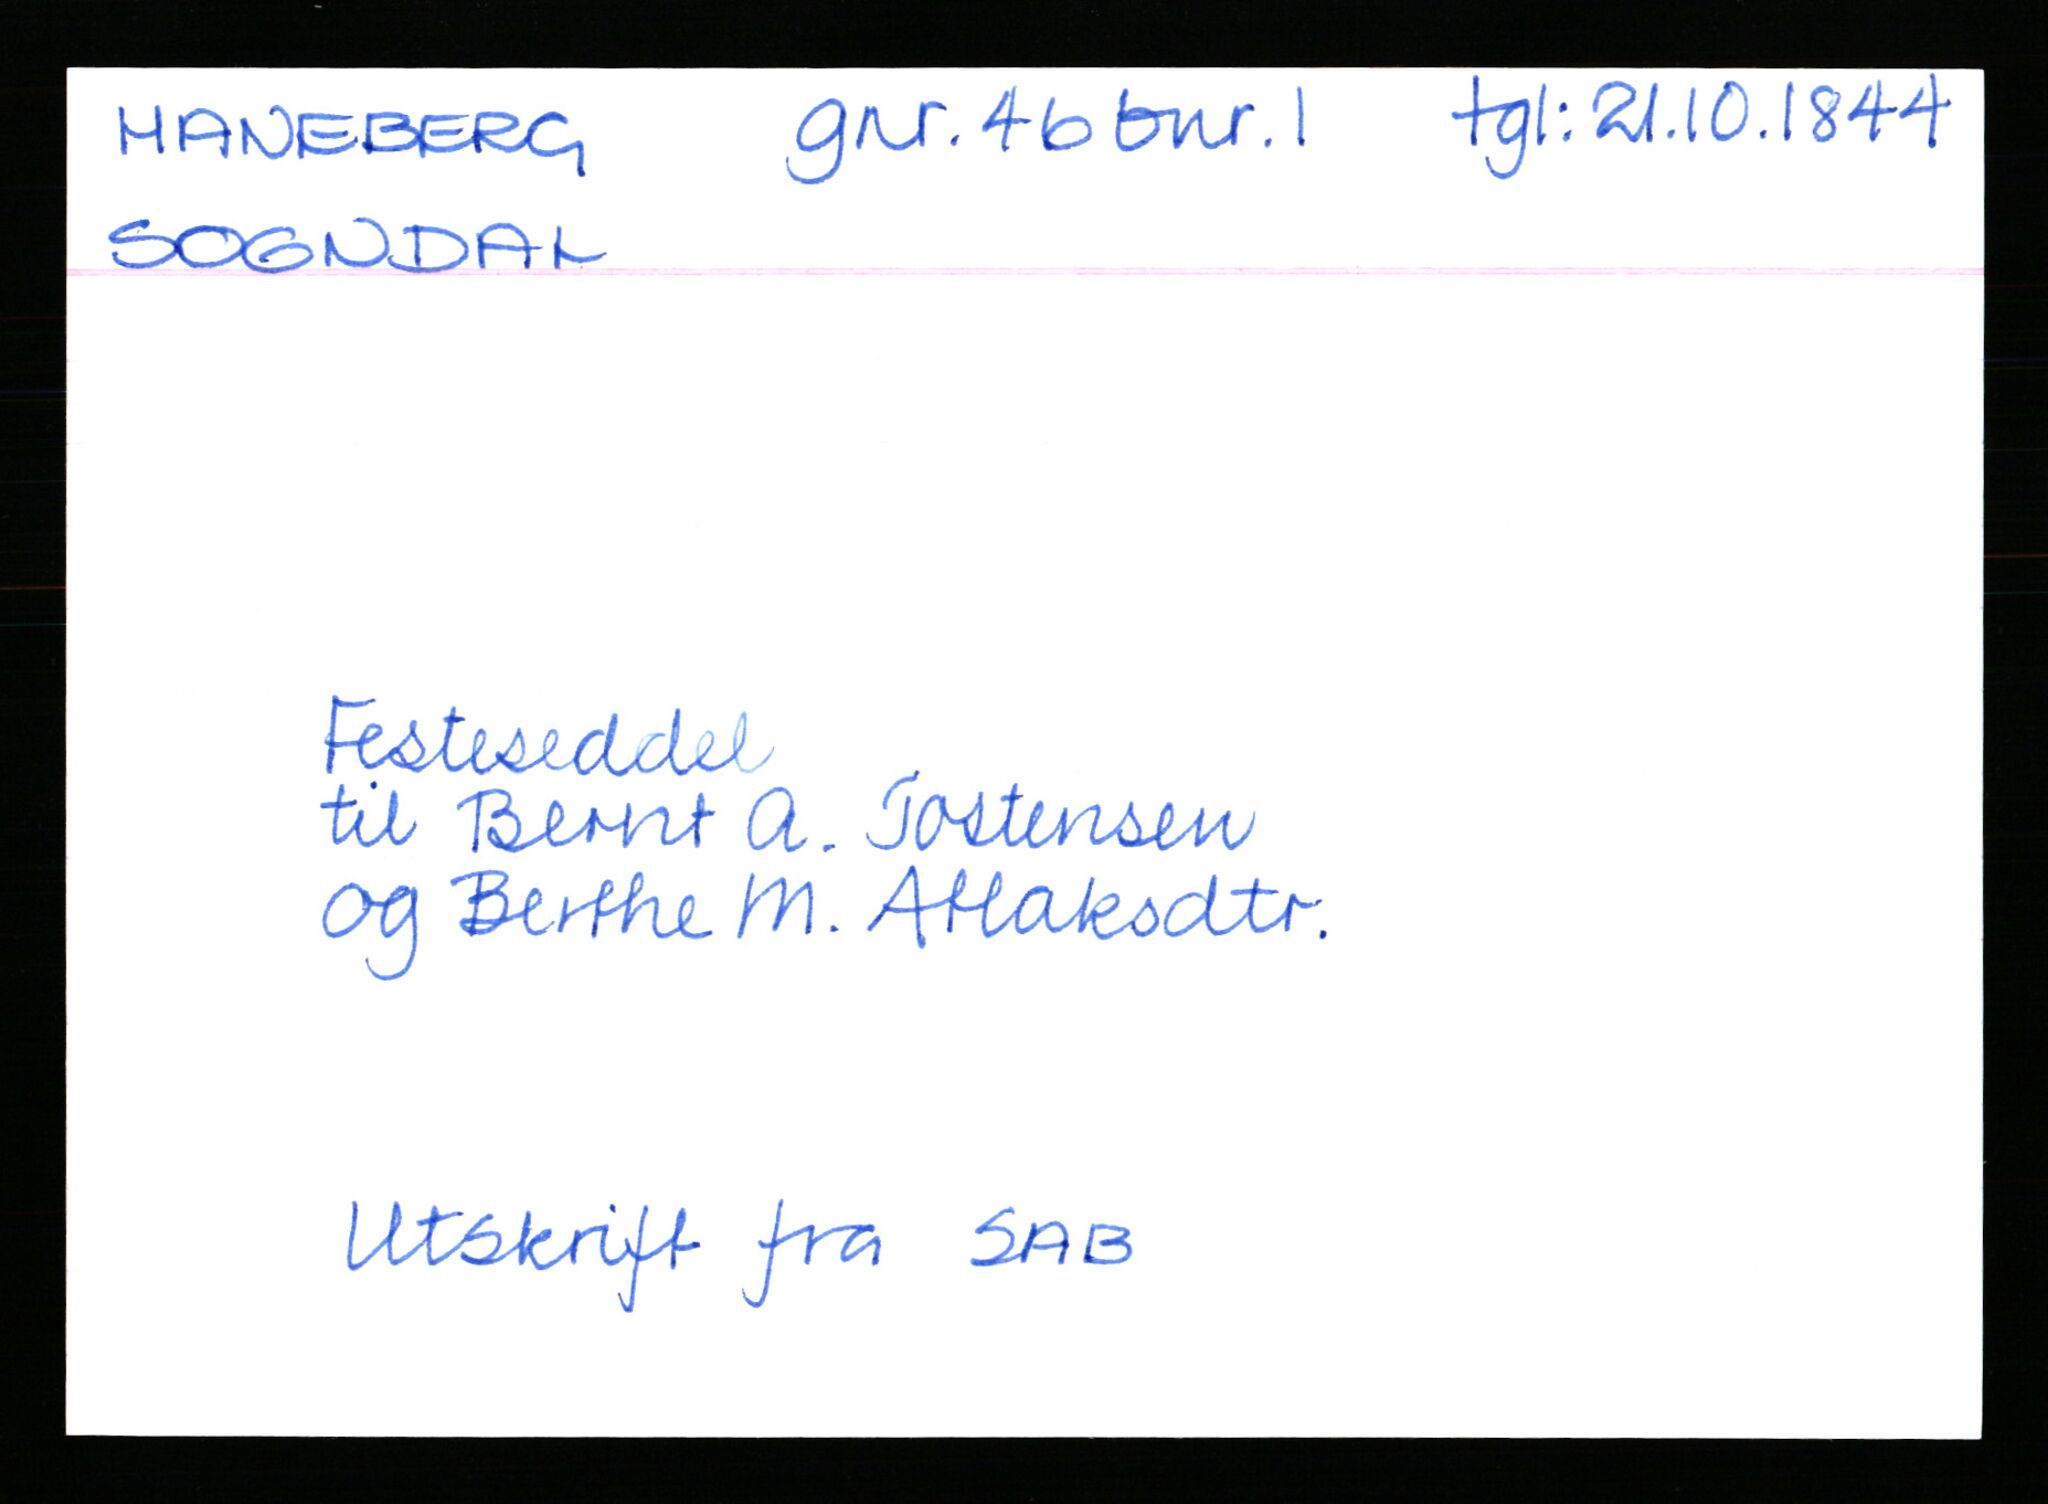 HANEBERG gnr. 46 bnr. 1 tgl: 21.10.1844
SOGNDAL
Festeseddel
til Bernt A. Tostensen
og Berthe M. Atlaksdtr.
Utskrift fra SAB